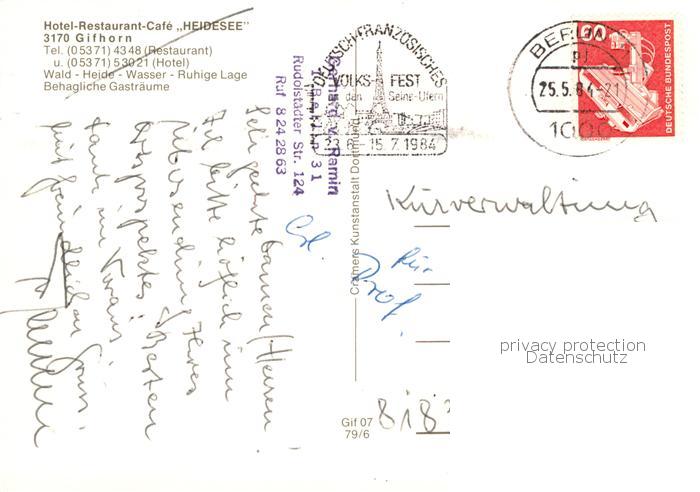 Hotel-Restaurant-Café „HEIDESEE"
3170 Gifhorn
Tel. (05371) 4348 (Restaurant)
u. (05371) 53021 (Hotel)
Wald - Heide - Wasser - Ruhige Lage
Behagliche Gasträume
DEUTSCH-FRANZÖSISCHES
VOLKS FEST
Seine-Ufern
15.7.1984
BERLIN
25.5.84-21
1000
60
DEUTSCHE BUNDESPOST
v. Ramin
Berlin 31
Rudolstädter Str. 124
Ruf 824 28 63
Sehr geehrte Damen/Herren
Ich bitte höflich um
Übersendung Ihres
Ortsprospektes. Besten
Dank im Voraus.
Mit freundlichen Gruss.
Kurverwaltung
für
Prof.
Cramers Kunstanstalt Dortmund
privacy protection
Datenschutz
Gif 07
79/6
818